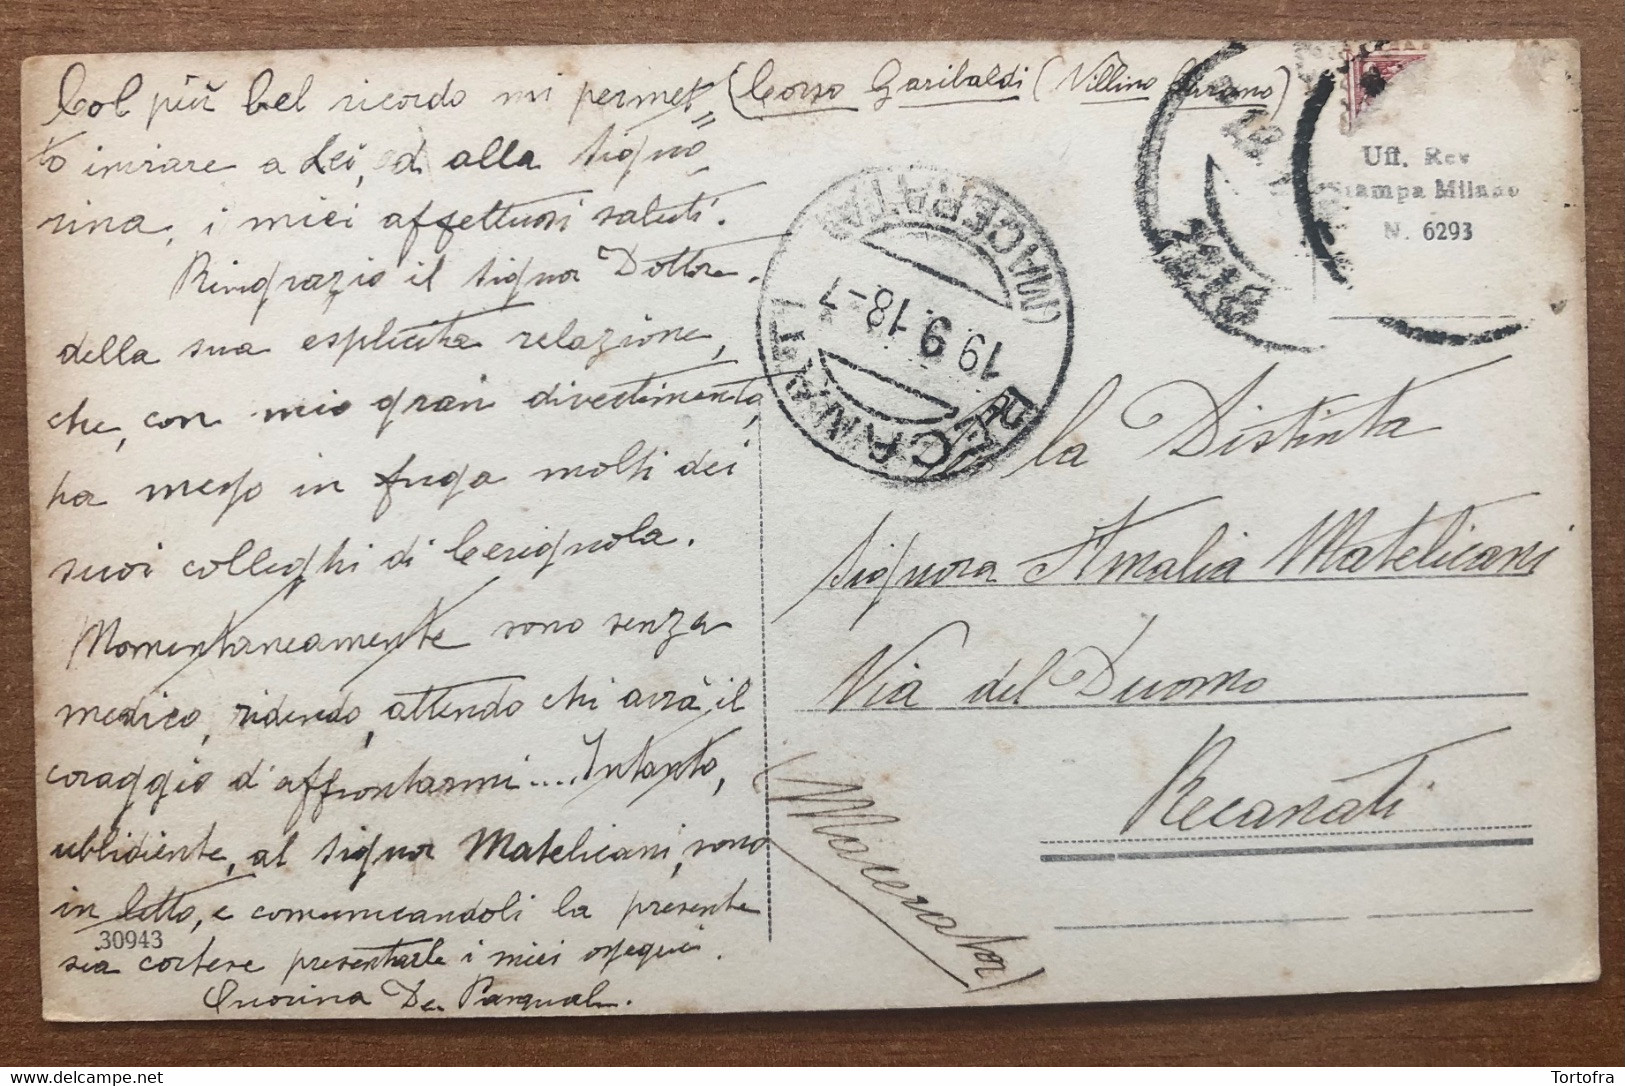 Col più bel ricordo mi permet=
to inviare a Lei, ed alla Signo
rina, i miei affettuosi saluti.
Ringrazio il Signor Dottore
della sua esplicita relazione,
che, con mio gran divertimento,
ha messo in fuga molti dei
suoi colleghi di Cerignola.
Momentaneamente sono senza
medico, ridendo, attendo chi avrà il
coraggio d'affrontarmi.... Intanto,
ubbidiente, al Signor Matelicani, sono
in letto, e comunicandoli la presente
30943
sia cortese presentarle i miei ossequi.
De Pasquale.
(Corso Garibaldi (Villino
Uff. Rev
Stampa Milano
N. 6293
RECANATI
(MACERATA)
19.9.18-7
la Distinta
Signora Amalia Matelicani
Via del Duomo
Recanati
(Macerata)
Tortofra